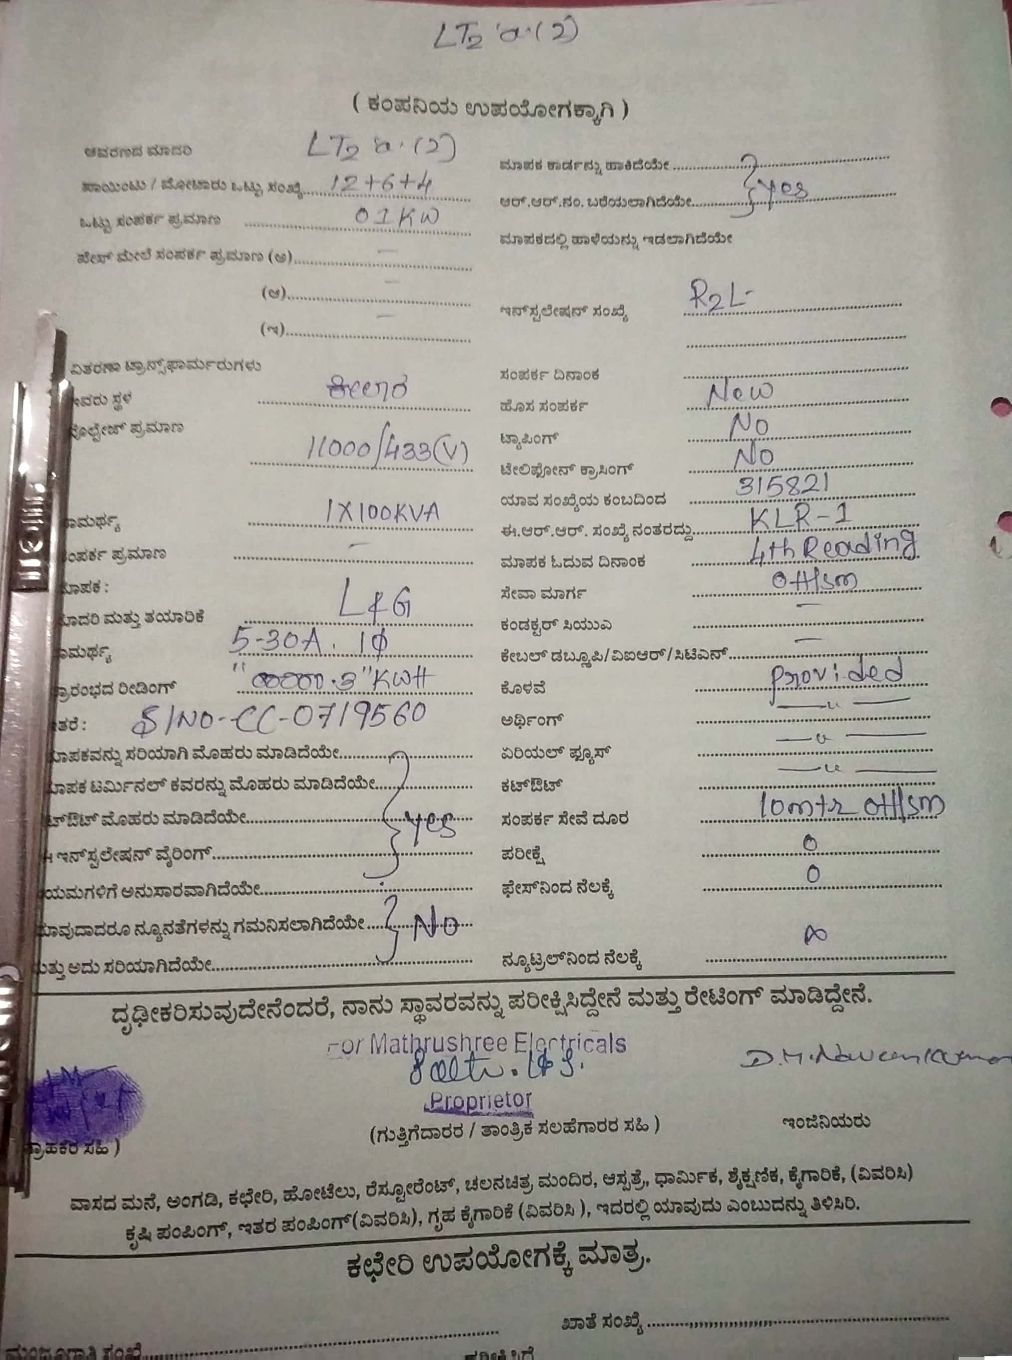 LT2 a.(2)
( ಕಂಪನಿಯ ಉಪಯೋಗಕ್ಕಾಗಿ )
ಆವರಣದ ಮಾದರಿ LT2 a.(2)
ಪಾಯಿಂಟು / ಮೋಟಾರು ಒಟ್ಟು ಸಂಖ್ಯೆ 12+6+4
ಒಟ್ಟು ಸಂಪರ್ಕ ಪ್ರಮಾಣ 01KW
ಫೇಸ್ ಮೇಲೆ ಸಂಪರ್ಕ ಪ್ರಮಾಣ (ಅ) –
(ಆ) –
(ಇ) –
ವಿತರಣಾ ಟ್ರಾನ್ಸ್‌ಫಾರ್ಮರುಗಳು
ಇವರು ಸ್ಥಳ
ವೋಲ್ಟೇಜ್ ಪ್ರಮಾಣ 11000/433(V)
ಸಾಮರ್ಥ್ಯ 1X100KVA
ಸಂಪರ್ಕ ಪ್ರಮಾಣ –
ಮಾಪಕ :
ಮಾದರಿ ಮತ್ತು ತಯಾರಿಕೆ L&G
ಸಾಮರ್ಥ್ಯ 5-30A. 1ϕ
ಪ್ರಾರಂಭದ ರೀಡಿಂಗ್ KWH
ಇತರೆ : S/NO-CC-0719560
ಮಾಪಕವನ್ನು ಸರಿಯಾಗಿ ಮೊಹರು ಮಾಡಿದೆಯೇ
ಮಾಪಕ ಟರ್ಮಿನಲ್ ಕವರನ್ನು ಮೊಹರು ಮಾಡಿದೆಯೇ
ಕಟ್‌ಔಟ್ ಮೊಹರು ಮಾಡಿದೆಯೇ Yes
ಈ ಇನ್‌ಸ್ಟಲೇಷನ್ ವೈರಿಂಗ್
ನಿಯಮಗಳಿಗೆ ಅನುಸಾರವಾಗಿದೆಯೇ
ಯಾವುದಾದರೂ ನ್ಯೂನತೆಗಳನ್ನು ಗಮನಿಸಲಾಗಿದೆಯೇ No
ಮತ್ತು ಅದು ಸರಿಯಾಗಿದೆಯೇ
ಮಾಪಕ ಕಾರ್ಡನ್ನು ಹಾಕಿದೆಯೇ
ಆರ್.ಆರ್.ನಂ. ಬರೆಯಲಾಗಿದೆಯೇ Yes
ಮಾಪಕದಲ್ಲಿ ಹಾಳೆಯನ್ನು ಇಡಲಾಗಿದೆಯೇ
ಇನ್‌ಸ್ಟಲೇಷನ್ ಸಂಖ್ಯೆ R2L-
ಸಂಪರ್ಕ ದಿನಾಂಕ
ಹೊಸ ಸಂಪರ್ಕ New
ಟ್ಯಾಪಿಂಗ್ No
ಟೇಲಿಫೋನ್ ಕ್ರಾಸಿಂಗ್ No
ಯಾವ ಸಂಖ್ಯೆಯ ಕಂಬದಿಂದ 315821
ಈ.ಆರ್.ಆರ್. ಸಂಖ್ಯೆ ನಂತರದ್ದು KLR-1
ಮಾಪಕ ಓದುವ ದಿನಾಂಕ 4th Reading
ಸೇವಾ ಮಾರ್ಗ OH/sm
ಕಂಡಕ್ಟರ್ ಸಿಯುಎ –
ಕೇಬಲ್ ಡಬ್ಲ್ಯೂಪಿ/ವಿಐಆರ್/ಸಿಟಿಎಸ್ –
ಕೊಳವೆ provided
ಅರ್ಥಿಂಗ್ — " —
ಏರಿಯಲ್ ಫ್ಯೂಸ್ — " —
ಕಟ್‌ಔಟ್ — " —
ಸಂಪರ್ಕ ಸೇವೆ ದೂರ 10mtr OH/sm
ಪರೀಕ್ಷೆ 0
ಫೇಸ್‌ನಿಂದ ನೆಲಕ್ಕೆ 0
ನ್ಯೂಟ್ರಲ್‌ನಿಂದ ನೆಲಕ್ಕೆ ∞
ದೃಢೀಕರಿಸುವುದೇನೆಂದರೆ, ನಾನು ಸ್ಥಾವರವನ್ನು ಪರೀಕ್ಷಿಸಿದ್ದೇನೆ ಮತ್ತು ರೇಟಿಂಗ್ ಮಾಡಿದ್ದೇನೆ.
For Mathrushree Electricals
D.M. Naveen Kumar
Proprietor
ಗ್ರಾಹಕರ ಸಹಿ )
(ಗುತ್ತಿಗೆದಾರರ / ತಾಂತ್ರಿಕ ಸಲಹೆಗಾರರ ಸಹಿ )
ಇಂಜಿನಿಯರು
ವಾಸದ ಮನೆ, ಅಂಗಡಿ, ಕಛೇರಿ, ಹೋಟೆಲು, ರೆಸ್ಟೋರೆಂಟ್, ಚಲನಚಿತ್ರ ಮಂದಿರ, ಆಸ್ಪತ್ರೆ, ಧಾರ್ಮಿಕ, ಶೈಕ್ಷಣಿಕ, ಕೈಗಾರಿಕೆ, (ವಿವರಿಸಿ)
ಕೃಷಿ ಪಂಪಿಂಗ್, ಇತರ ಪಂಪಿಂಗ್(ವಿವರಿಸಿ), ಗೃಹ ಕೈಗಾರಿಕೆ (ವಿವರಿಸಿ ), ಇದರಲ್ಲಿ ಯಾವುದು ಎಂಬುದನ್ನು ತಿಳಿಸಿರಿ.
ಕಛೇರಿ ಉಪಯೋಗಕ್ಕೆ ಮಾತ್ರ.
ಖಾತೆ ಸಂಖ್ಯೆ
ಮಂಜೂರಾತಿ ಸಂಖ್ಯೆ